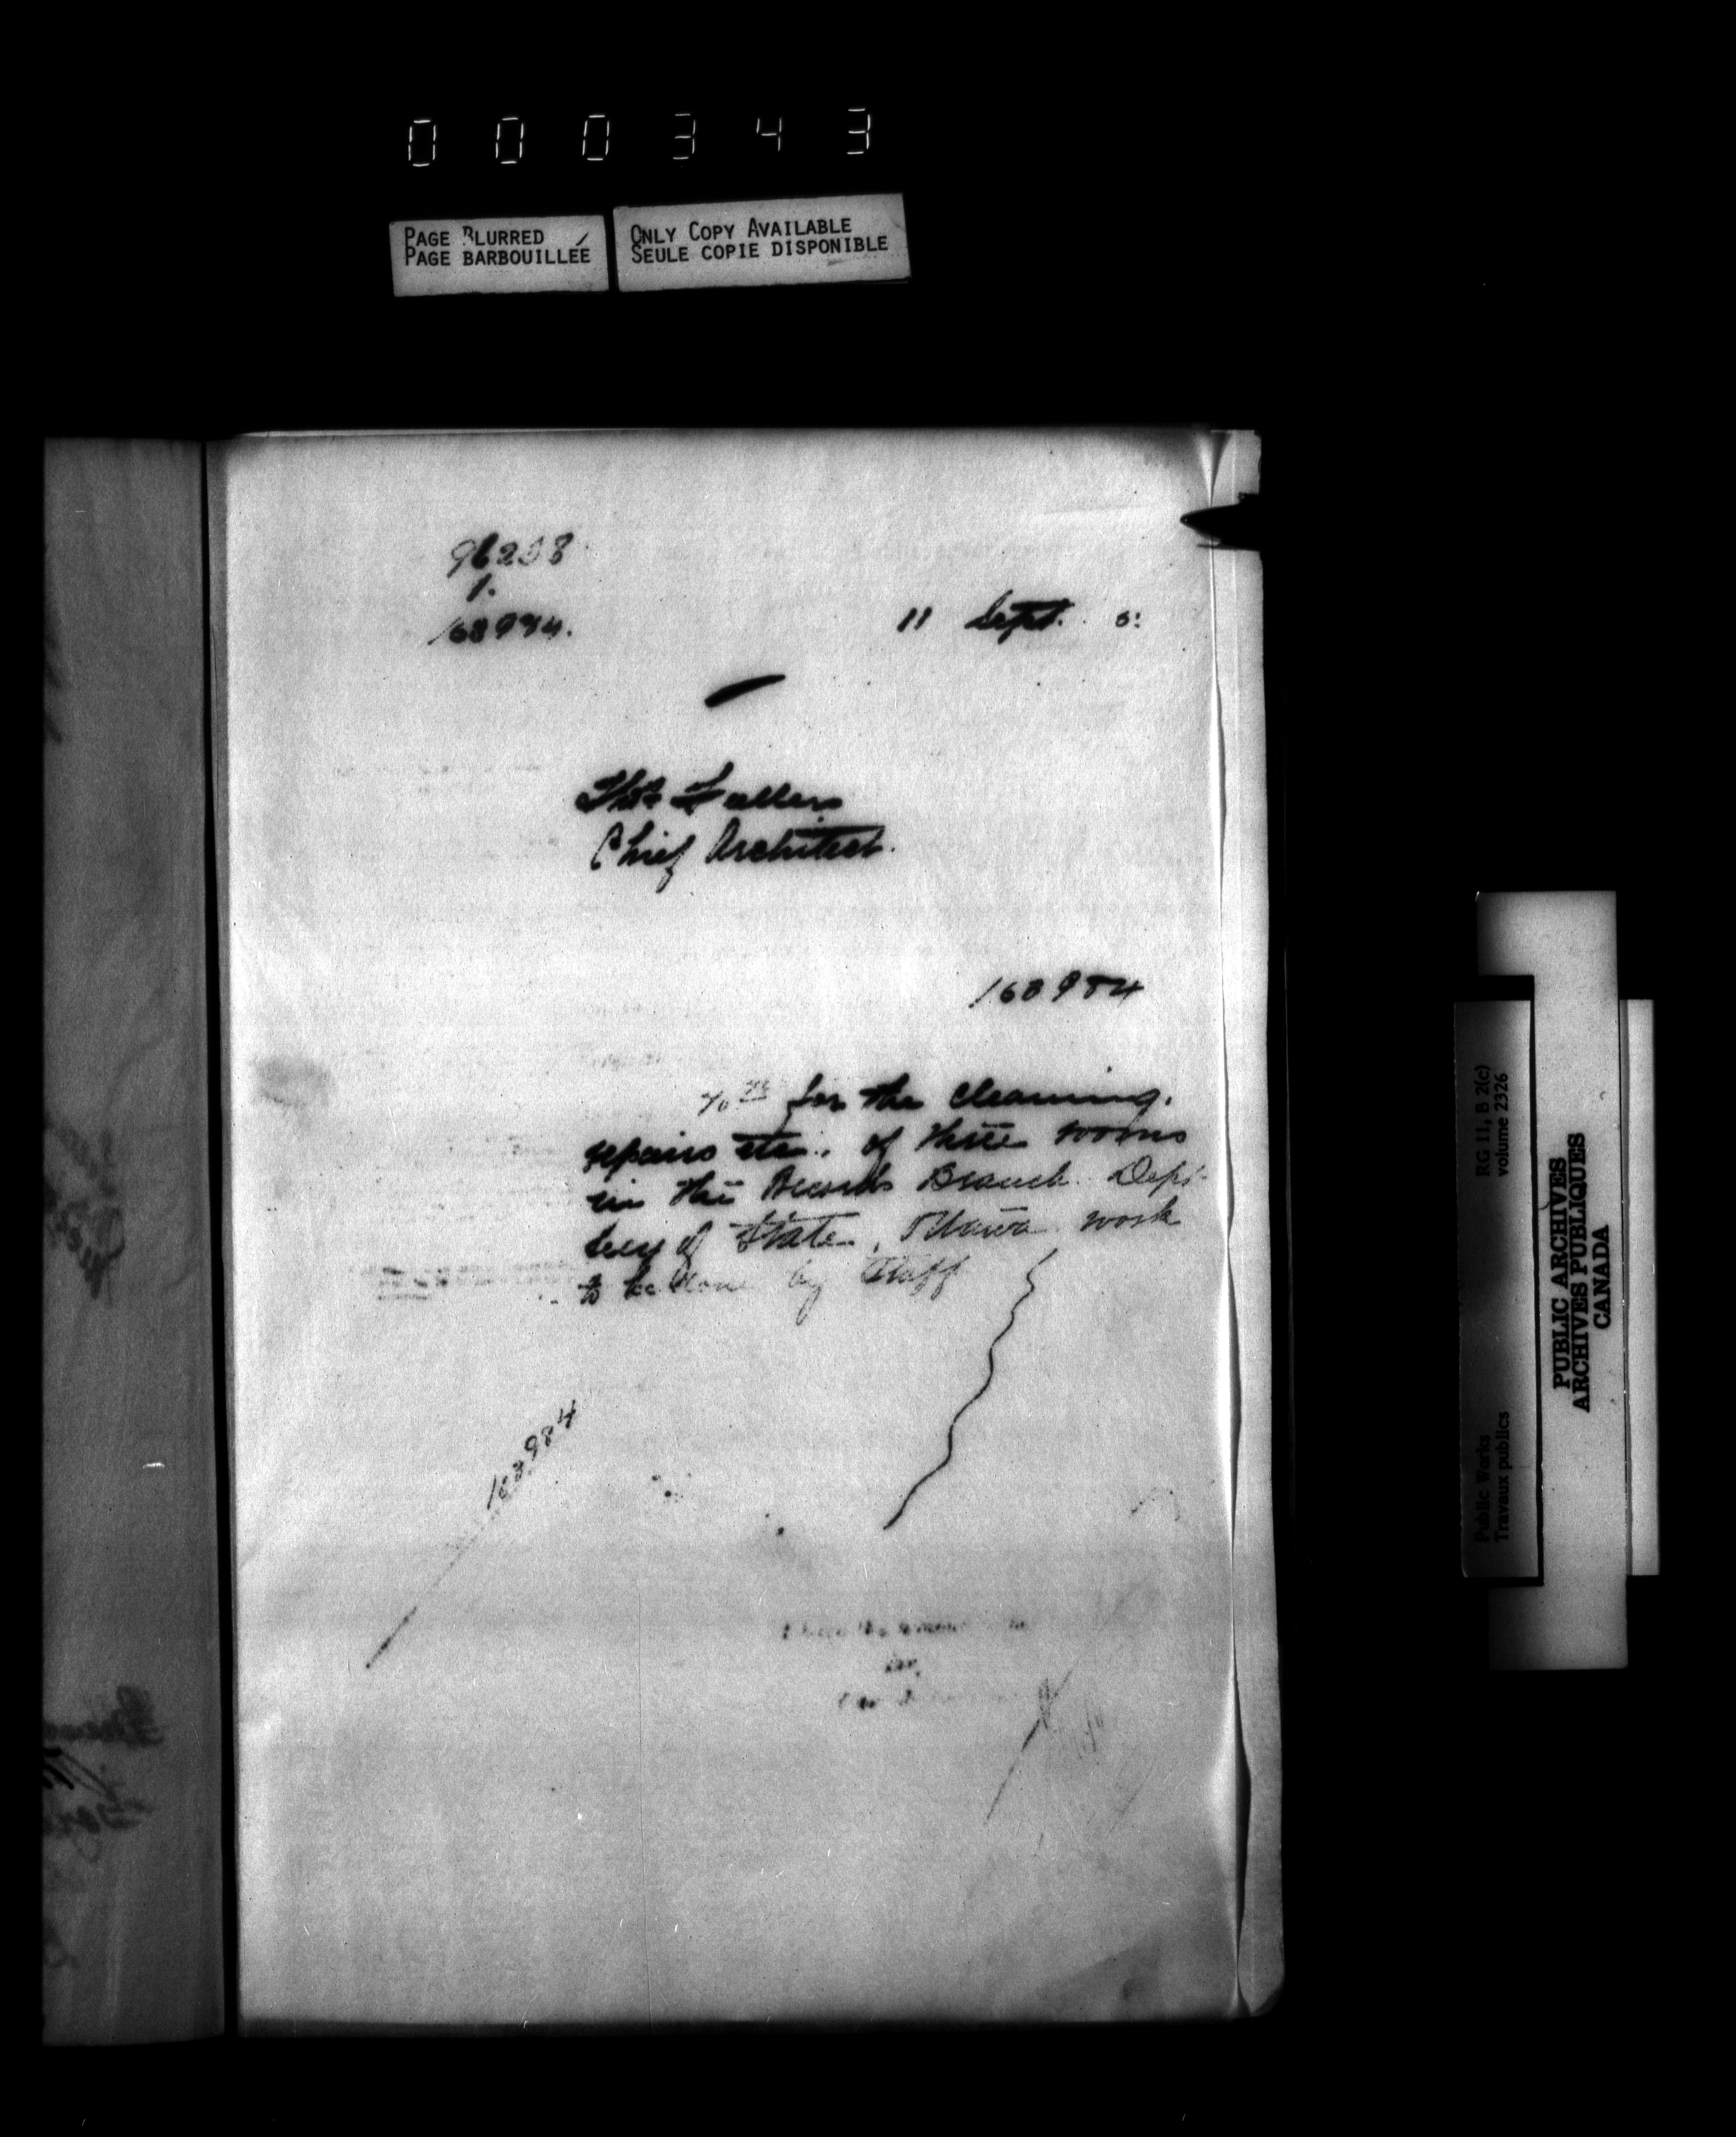 000343
PAGE BLURRED
PAGE BARBOUILLÉE
ONLY COPY AVAILABLE
SEULE COPIE DISPONIBLE
96238
1.
168984.
11 Sept.
Thos Fuller
Chief Architect.
168984
for the cleaning,
repairs etc. of three rooms
in the Records Branch Dept
Secy of State, Ottawa work
to be done by Staff
168984
Sir,
RG 11, B 2(c)
volume 2326
Public Works
Travaux publics
PUBLIC ARCHIVES
ARCHIVES PUBLIQUES
CANADA